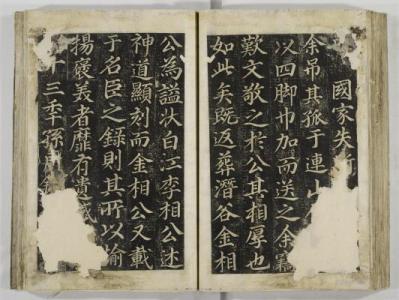 國家失
余吊其孤于連山
以四脚巾加而送之余
歎文敬之於公其相厚也
如此矣旣返葬潛谷金相
公為謚狀白江李相公述
神道顯刻而金相公又載
于名臣之錄則其所以揄
揚褒義者靡有遺
十三季孫